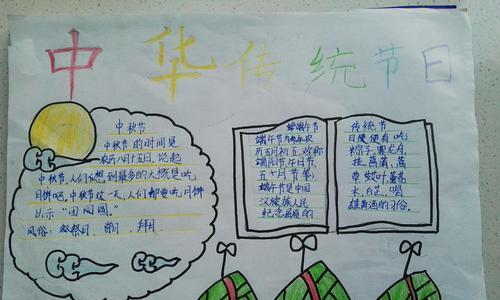 中华传统节日
中秋节
中秋节的时间是
农历八月十五日,说起
中秋节,人们想到最多的大概是吃
月饼吧。中秋节这一天,人们都要吃月饼
以示“团圆”。
风俗:祭月、赏月、拜月
端午节
端午节为每年农
历五月初五,又称
端阳节、午日节、
五月节等;
端午节是中国
汉族人民
纪念屈原的
传统节
日,更有吃
粽子,赛龙舟,
挂菖蒲、蒿
草、艾叶,薰苍
术、白芷,喝
雄黄酒的习俗。